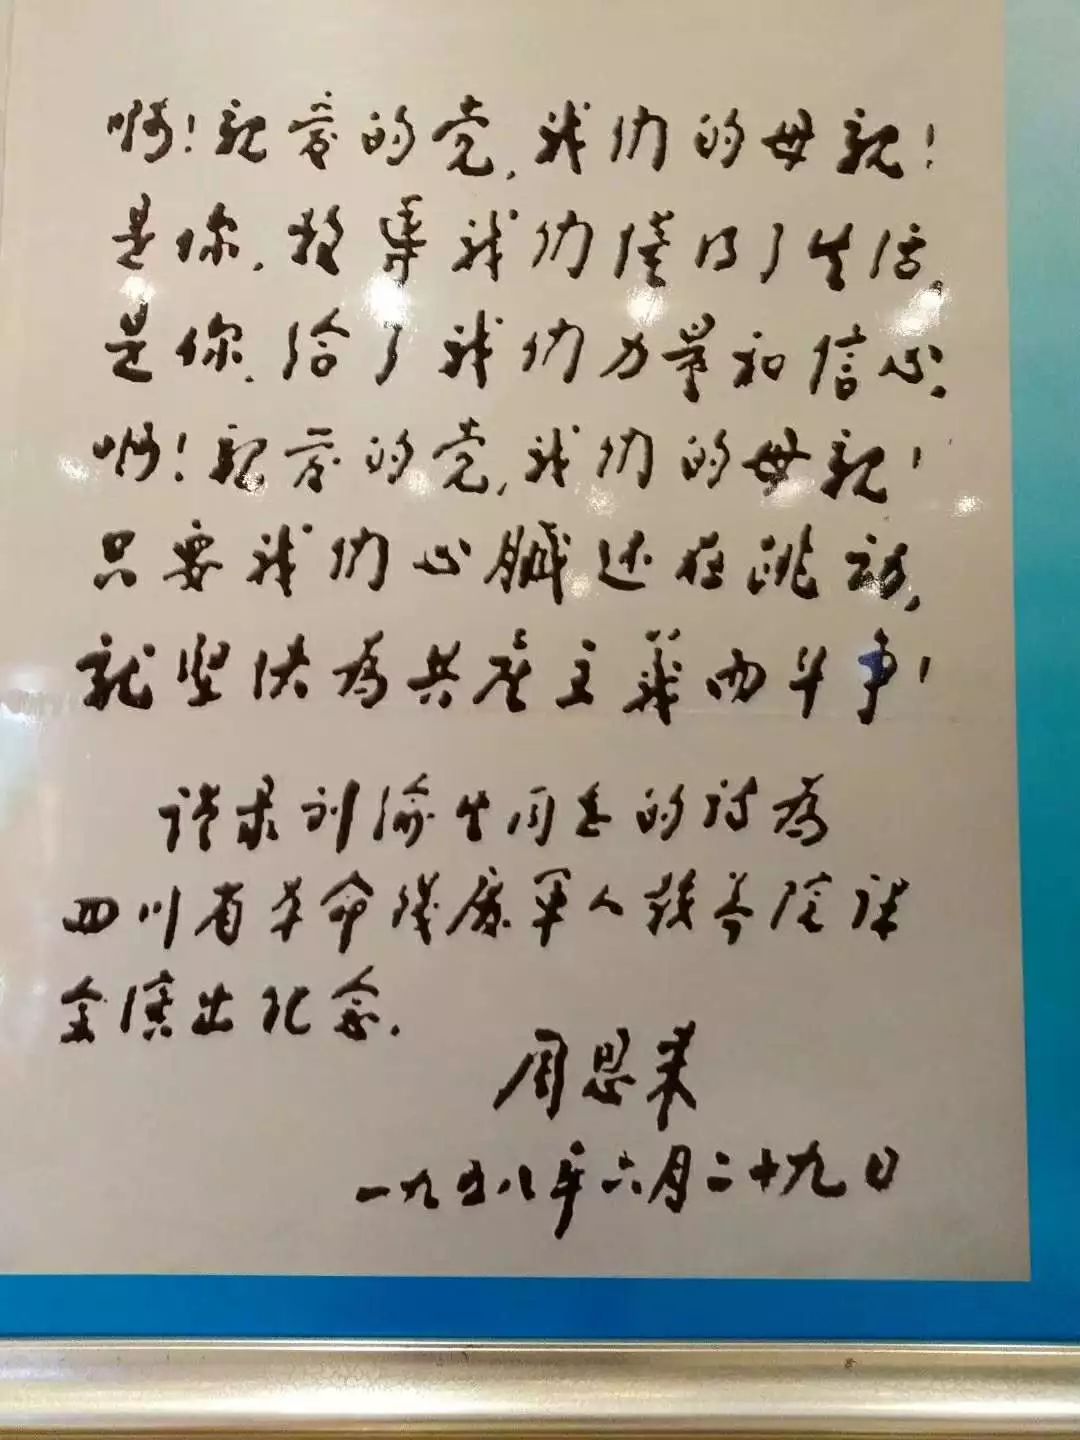 啊！亲爱的党，我们的母亲！
是你，教导我们懂得了生活，
是你，给了我们力量和信心。
啊！亲爱的党，我们的母亲！
只要我们心脏还在跳动，
就坚决为共产主义而斗争！
谨录刘渝生同志的诗为
四川省革命残废军人教养院课
余演出纪念。
周恩来
一九五八年六月二十九日